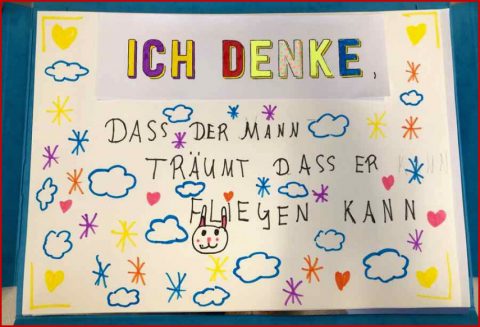 ICH DENKE,
DASS DER MANN
TRÄUMT DASS ER
FLIEGEN KANN